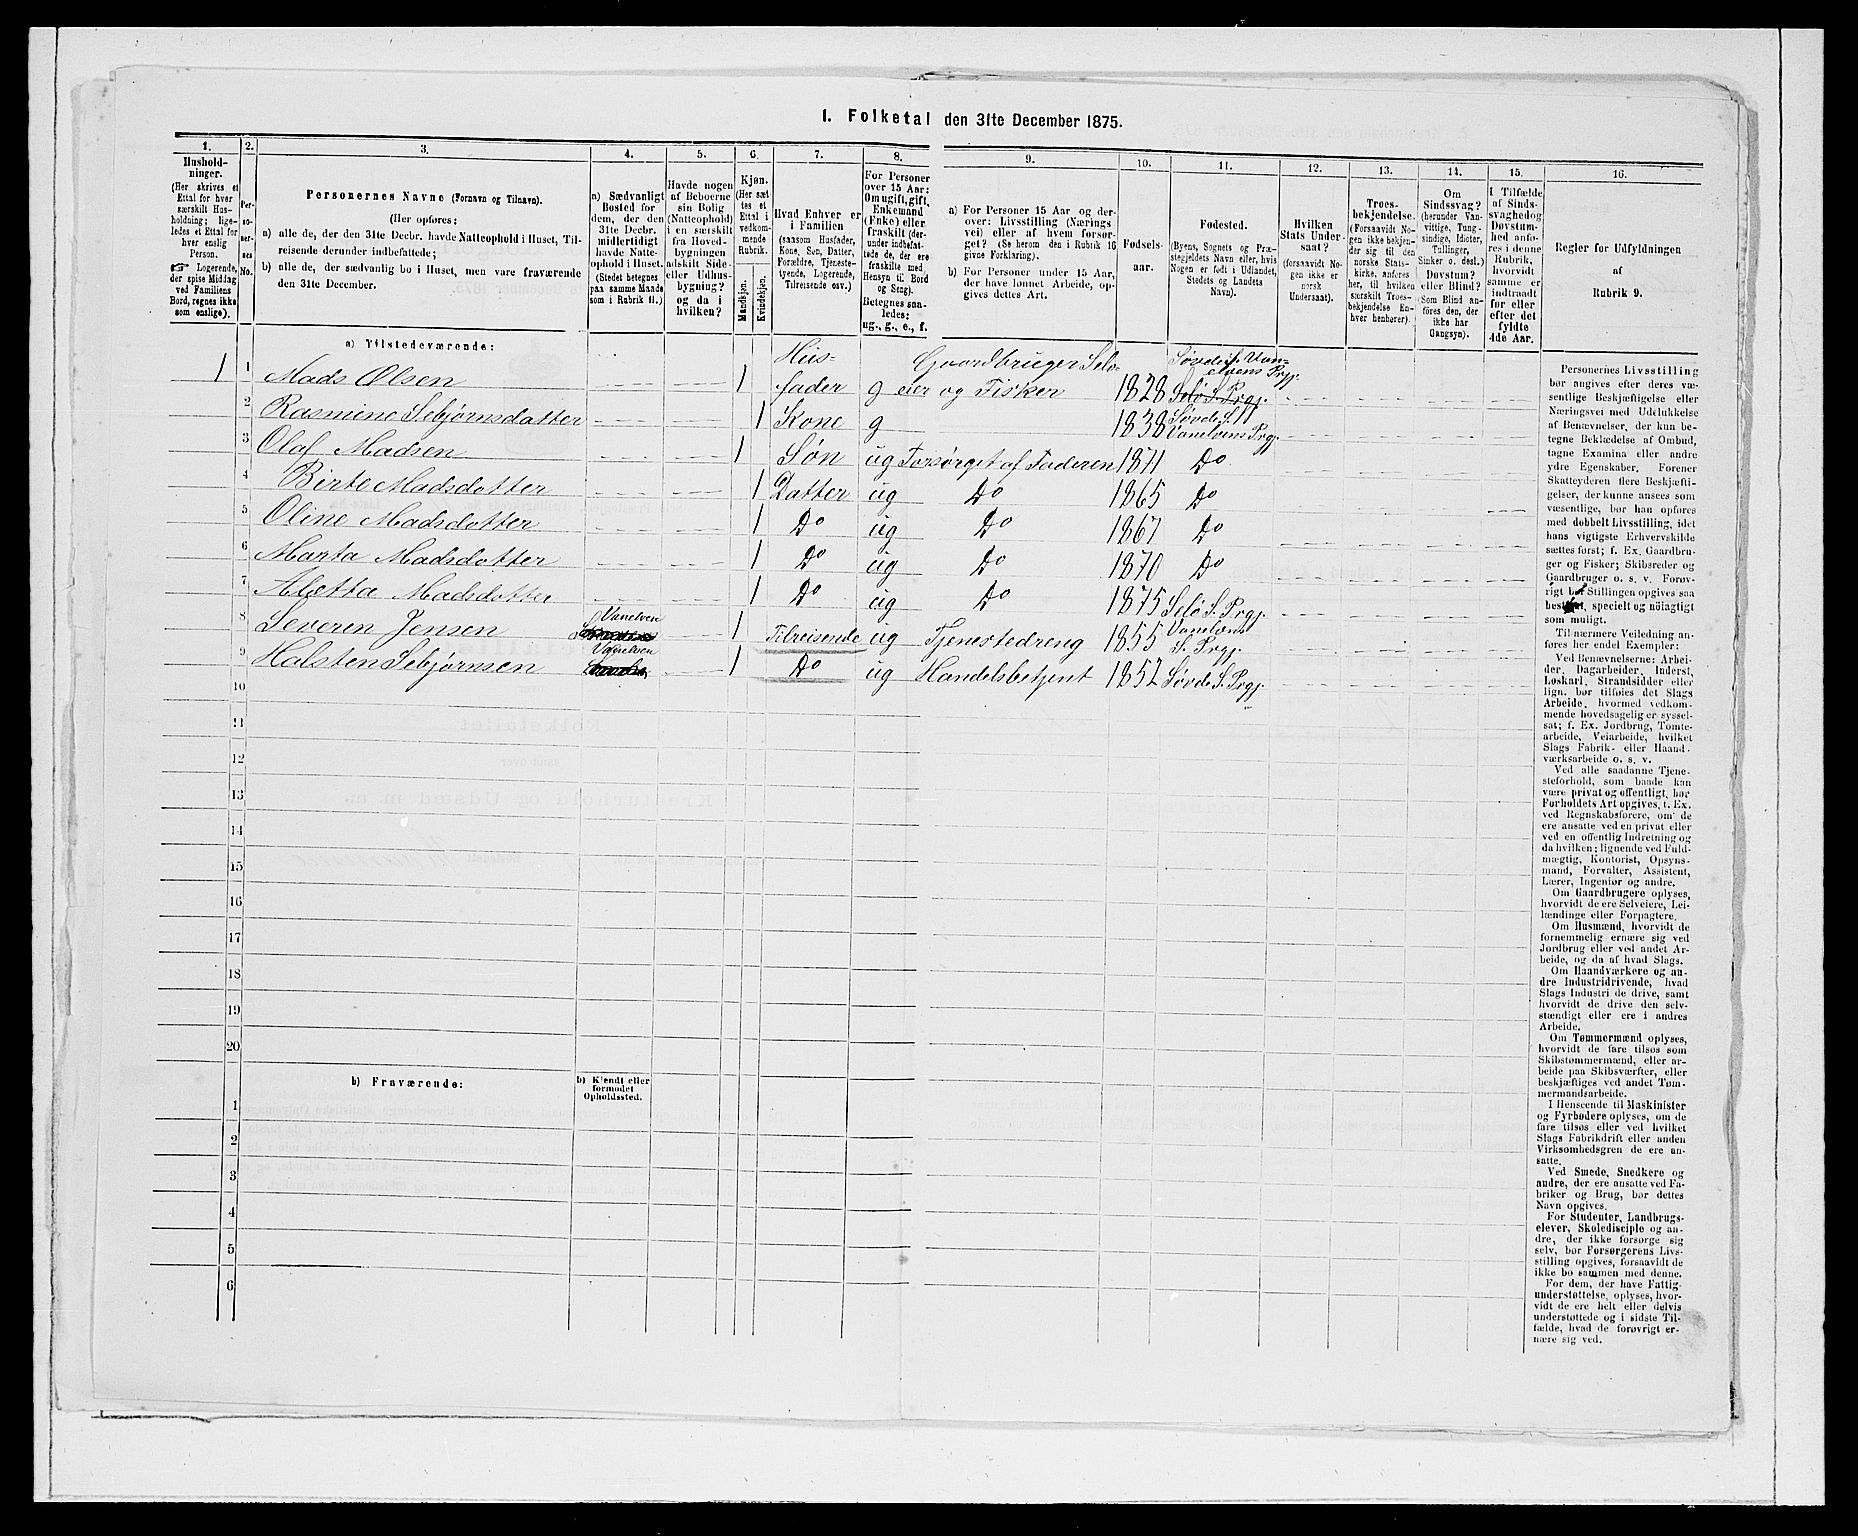 1. Folketal den 31te December 1875.
1. 2. 3. 4. 5. 6. 7. 8. 9. 10. 11. 12. 13. 14. 15. 16.
Hushold-
ninger.
(Her skrives et
Ettal for hver
særskilt Hus-
holdning; lige-
ledes et Ettal for
hver enslig
Person.
☞ Logerende,
der spise Middag
ved Familiens
Bord, regnes ikke
som enslige).
Per-
so-
ner-
nes
No.
Personernes Navne (Fornavn og Tilnavn).
(Her opføres:
a) alle de, der den 31te Decbr. havde Natteophold i Huset, Til-
reisende derunder indbefattede;
b) alle de, der sædvanlig bo i Huset, men vare fraværende
den 31te December.
a) Sædvanligt
Bosted for
dem, der den
31te Decbr.
midlertidigt
havde Natte-
ophold i Huset.
(Stedet betegnes
paa samme Maade
som i Rubrik 11.)
Havde nogen
af Beboerne
sin Bolig
(Natteophold)
i en særskilt
fra Hoved-
bygningen
adskilt Side-
eller Udhus-
bygning?
og da i
hvilken?
Kjøn.
(Her sæt-
tes et
Ettal i
vedkom-
mende
Rubrik.
Mandkjøn.
Kvindekjøn.
Hvad Enhver er
i Familien
(saasom Husfader,
Kone, Søn, Datter,
Forældre, Tjeneste-
tyende, Logerende,
Tilreisende osv.)
For Personer
over 15 Aar:
Om ugift, gift,
Enkemand
(Enke) eller
fraskilt (der-
under indbefat-
tede de, der ere
fraskilte med
Hensyn til Bord
og Seng).
Betegnes saa-
ledes:
ug., g., e., f.
a) For Personer 15 Aar og der-
over: Livsstilling (Nærings-
vei) eller af hvem forsør-
get? (Se herom den i Rubrik 16
givne Forklaring).
b) For Personer under 15 Aar,
der have lønnet Arbeide, op-
gives dettes Art.
Fødsels-
aar.
Fødested.
(Byens, Sognets og Præ-
stegjeldets Navn eller, hvis
Nogen er født i Udlandet,
Stedets og Landets
Navn).
Hvilken
Stats Under-
saat?
(forsaavidt No-
gen ikke er
norsk
Undersaat).
Troes-
bekjendelse.
(Forsaavidt No-
gen ikke bekjen-
der sig til den
norske Stats-
kirke, anføres
her, til hvilken
særskilt Troes-
bekjendelse En-
hver henhører).
Om
Sindssvag?
(herunder Van-
vittige, Tung-
sindige, Idioter,
Tullinger,
Sinker o. desl.)
Døvstum?
eller Blind?
(Som Blind an-
føres den, der
ikke har
Gangsyn).
I Tilfælde
af Sinds-
svaghed og
Døvstum-
hed anfø-
res i denne
Rubrik,
hvorvidt
samme er
indtraadt
før eller
efter det
fyldte
4de Aar.
Regler for Udfyldningen
af
Rubrik 9.
a) Tilstedeværende:
1 1 Mads Olsen 1 Hus-fader g Gaardbruger Selv-eier og Fisker 1828 Selø S. Prgj.
2 Rasmine Sebjørnsdatter 1 Kone g 1838 Søvde S. Vanelvens Prgj.
3 Olaf Madsen 1 Søn ug Forsørget af Faderen 1871 Do
4 Birte Madsdatter 1 Datter ug Do 1865 Do
5 Oline Madsdotter 1 Do ug Do 1867 Do
6 Marta Madsdotter 1 Do ug Do 1870 Do
7 Aletta Madsdotter 1 Do ug Do 1875 Selø S. Prgj.
8 Severen Jensen Vanelven 1 Tilreisende ug Tjenestedreng 1855 Vanelvens S. Prgj.
9 Halsten Sebjørnsen Vanelven 1 Do ug Handelsbetjent 1852 Søvde S. Prgj.
10
11
12
13
14
15
16
17
18
19
20
b) Fraværende:
b) Kjendt eller
formodet
Opholdssted.
1
2
3
4
5
6
Personernes Livsstilling
bør angives efter deres væ-
sentlige Beskjæftigelse eller
Næringsvei med Udelukkelse
af Benævnelser, der kun be-
tegne Beklædelse af Ombud,
tagne Examina eller andre
ydre Egenskaber. Forener
Skatteyderen flere Beskjæfti-
gelser, der kunne ansees som
væsentlige, bør han opføres
med dobbelt Livsstilling, idet
hans vigtigste Erhvervskilde
sættes først; f. Ex. Gaardbru-
ger og Fisker; Skibsreder og
Gaardbruger o. s. v. Forøv-
rigt bør Stillingen opgives saa
bestemt, specielt og nöiagtigt
som muligt.
Til nærmere Veiledning an-
føres her endel Exempler:
Ved Benævnelserne: Arbei-
der, Dagarbeider, Inderst,
Løskarl, Strandsidder eller
lign. bør tilføies det Slags
Arbeide, hvormed vedkom-
mende hovedsagelig er syssel-
sat; f. Ex. Jordbrug, Tomte-
arbeide, Veiarbeide, hvilket
Slags Fabrik- eller Haand-
værksarbeide o. s. v.
Ved alle saadanne Tjene-
steforhold, som baade kan
være privat og offentligt, bør
Forholdets Art opgives, t. Ex.
ved Regnskabsførere, om de
ere ansatte ved en privat eller
ved en offentlig Indretning og
da hvilken; lignende ved Fuld-
mægtig, Kontorist, Opsyns-
mand, Forvalter, Assistent,
Lærer, Ingeniør og andre.
Om Gaardbrugere oplyses,
hvorvidt de ere Selveiere, Lei-
lændinge eller Forpagtere.
Om Husmænd, hvorvidt de
fornemmelig ernære sig ved
Jordbrug eller ved andet Ar-
beide, og da af hvad Slags.
Om Haandværkere og an-
dre Industridrivende, hvad
Slags Industri de drive, samt
hvorvidt de drive den selv-
stændigt eller ere i andres
Arbeide.
Om Tømmermænd oplyses,
hvorvidt de fare tilsøs som
Skibstømmermænd, eller ar-
beide paa Skibsværfter, eller
beskjæftiges ved andet Tøm-
mermandsarbeide.
I Henseende til Maskinister
og Fyrbødere oplyses, om de
fare tilsøs eller ved hvilket
Slags Fabrikdrift eller anden
Virksomhedsgren de ere an-
satte.
Ved Smede, Snedkere og
andre, der ere ansatte ved Fa-
briker og Brug, bør dettes
Navn opgives.
For Studenter, Landbrugs-
elever, Skoledisciple og an-
dre, der ikke forsørge sig
selv, bør Forsørgerens Livs-
stilling opgives, forsaavidt de
ikke bo sammen med denne.
For dem, der have Fattig-
understøttelse, oplyses, hvor-
vidt de ere helt eller delvis
understøttede og i sidste Til-
fælde, hvad de forøvrigt er-
nære sig ved.